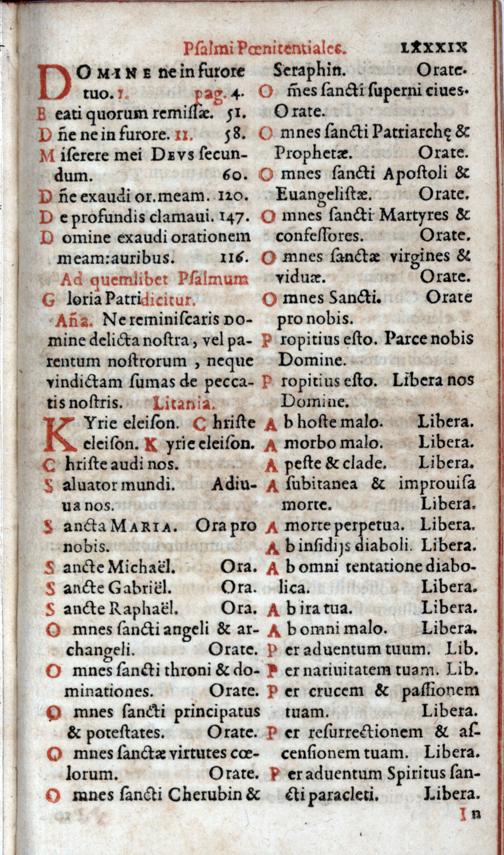 Psalmi Pœnitentiales. LXXXIX
DOMINE ne in furore
tuo. 1. pag. 4.
Beati quorum remissæ. 51.
Dñe ne in furore. 11. 58.
Miserere mei DEVS secun-
dum. 60.
Dñe exaudi or.meam. 120.
De profundis clamaui. 147.
Domine exaudi orationem
meam:auribus. 116.
Ad quemlibet Psalmum
Gloria Patri dicitur.
Aña. Ne reminiscaris DO-
mine delicta nostra, vel pa-
rentum nostrorum, neque
vindictam sumas de pecca-
tis nostris. Litania.
KYrie eleison. Christe
eleison. Kyrie eleison.
Christe audi nos.
Saluator mundi. Adiu-
ua nos.
Sancta MARIA. Ora pro
nobis.
Sancte Michaël. Ora.
Sancte Gabriël. Ora.
Sancte Raphaël. Ora.
Omnes sancti angeli & ar-
changeli. Orate.
Omnes sancti throni & do-
minationes. Orate.
Omnes sancti principatus
& potestates. Orate.
Omnes sanctæ virtutes cœ-
lorum. Orate.
Omnes sancti Cherubin &
Seraphin. Orate.
Om̃es sancti superni ciues.
Orate.
Omnes sancti Patriarchę &
Prophetæ. Orate.
Omnes sancti Apostoli &
Euangelistæ. Orate.
Omnes sancti Martyres &
confessores. Orate.
Omnes sanctæ virgines &
viduæ. Orate.
Omnes Sancti. Orate
pro nobis.
Propitius esto. Parce nobis
Domine.
Propitius esto. Libera nos
Domine.
Ab hoste malo. Libera.
A morbo malo. Libera.
A peste & clade. Libera.
A subitanea & improuisa
morte. Libera.
A morte perpetua. Libera.
Ab insidijs diaboli. Libera.
Ab omni tentatione diabo-
lica. Libera.
Ab ira tua. Libera.
Ab omni malo. Libera.
Per aduentum tuum. Lib.
Per natiuitatem tuam. Lib.
Per crucem & passionem
tuam. Libera.
Per resurrectionem & as-
censionem tuam. Libera.
Per aduentum Spiritus san-
cti paracleti. Libera.
In